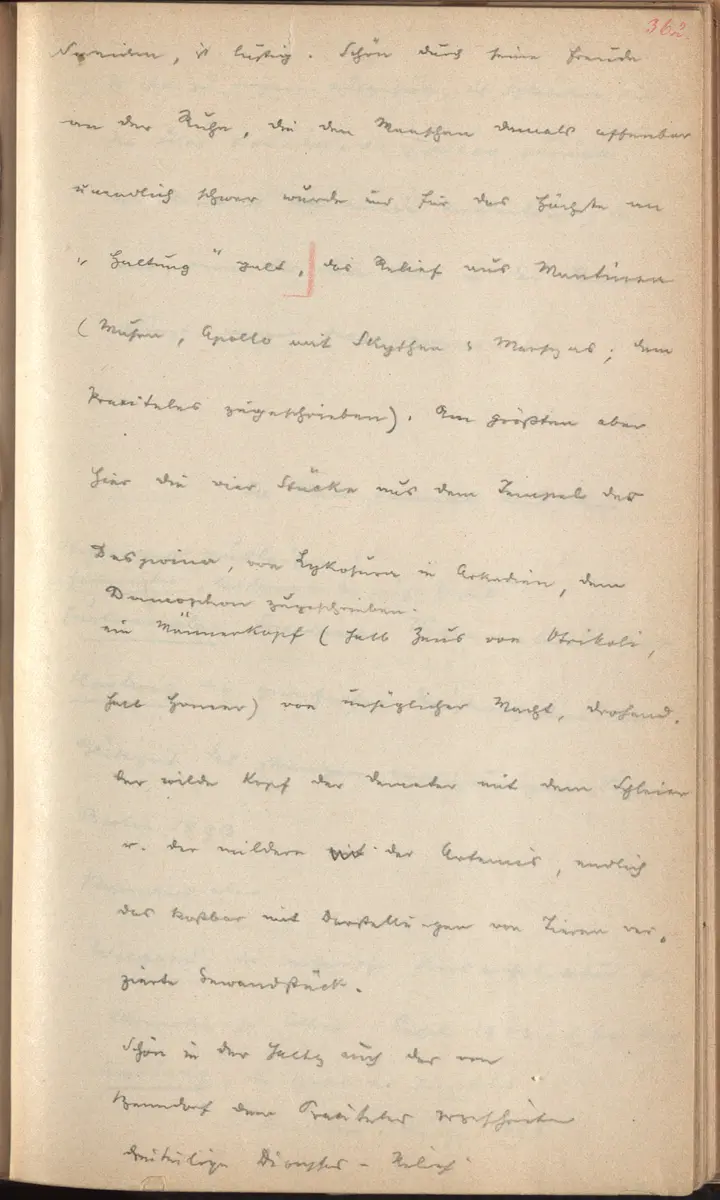 36²
, ist lustig. Schön durch seine Freude
an der Ruhe, die den Menschen damals offenbar
unendlich schwer wurde und für das Höchste an
„Haltung" galt, das Relief aus Mantinea
(Musen, Apollo mit Skythen u Marsyas; dem
Praxiteles zugeschrieben). Am größten aber
hier die vier Stücke aus dem Tempel der
Despoina, von Lykosura in Arkadien, dem
Damophon zugeschrieben.
ein Männerkopf (halb Zeus von Otrikoli,
halb Homer) von unsäglicher Macht, drohend.
der wilde Kopf der Demeter mit dem Schleier
u. der mildere der Artemis, endlich
das kostbar mit Darstellungen von Tieren ver-
zierte Gewandstück.
Schön in der Haltg auch das von
Benndorf dem Praxiteles
dreiteilige Relief